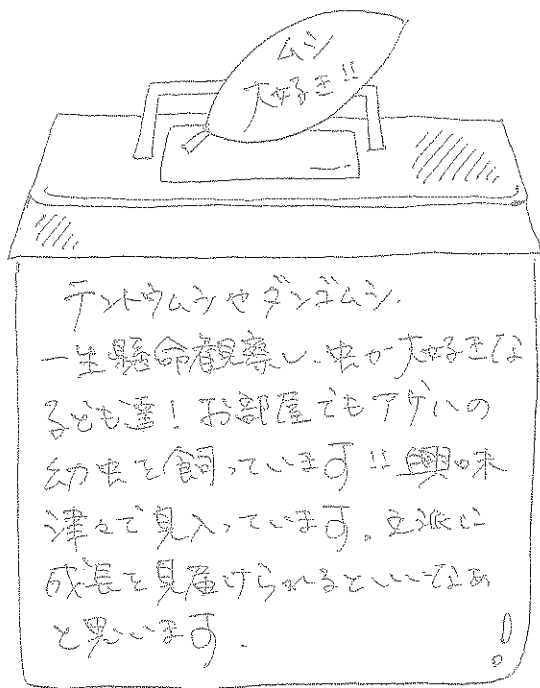 ムシ
大好き!!
テントウムシやダンゴムシ.
一生懸命観察し、虫が大好きな
子ども達！お部屋でもアゲハの
幼虫を飼っています!!興味
津々で見入っています。立派に
成長を見届けられるといいなあ
と思います.
!